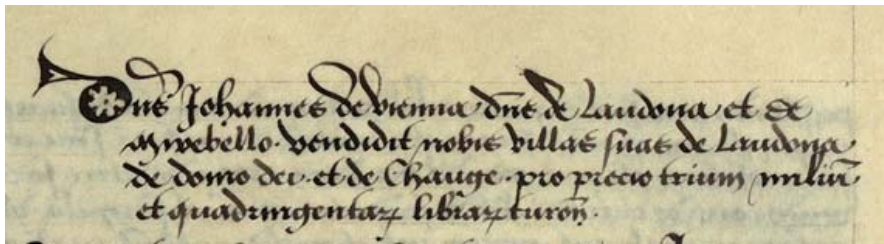 Dns Johannes de vienna dns de Laudona et de
Mirebello. vendidit nobis villas suas de Laudona
de domo dei. et de Chauge. pro precio trium miliu
et quadringentaꝝ libraꝝ turoñ.